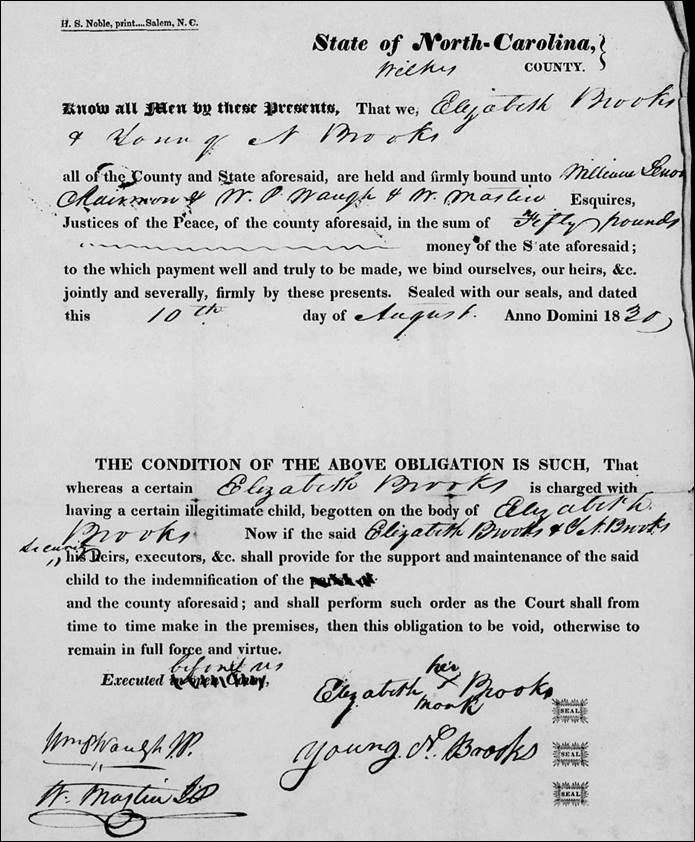 H. S. Noble, print....Salem, N. C.
State of North-Carolina,
Wilkes COUNTY.
Know all Men by these Presents, That we, Elizabeth Brooks
& Young N Brooks
all of the County and State aforesaid, are held and firmly bound unto William Lenoir
Chairman & W. P. Waugh & W. Mastin Esquires,
Justices of the Peace, of the county aforesaid, in the sum of Fifty pounds
money of the State aforesaid;
to the which payment well and truly to be made, we bind ourselves, our heirs, &c.
jointly and severally, firmly by these presents. Sealed with our seals, and dated
this 10th day of August. Anno Domini 1830
THE CONDITION OF THE ABOVE OBLIGATION IS SUCH, That
whereas a certain Elizabeth Brooks is charged with
having a certain illegitimate child, begotten on the body of Elizabeth
Brooks Now if the said Elizabeth Brooks & Y N. Brooks
security his heirs, executors, &c. shall provide for the support and maintenance of the said
child to the indemnification of the
and the county aforesaid; and shall perform such order as the Court shall from
time to time make in the premises, then this obligation to be void, otherwise to
remain in full force and virtue.
before us
Executed in open Court,
Elizabeth her x mark Brooks SEAL
Wm P Waugh J.P. Young. N. Brooks SEAL
W. Mastin JP SEAL